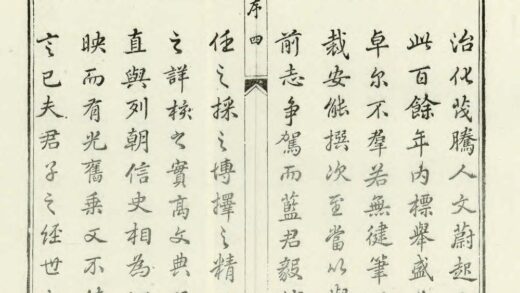 治化茂騰人文蔚起
此百餘年內標舉盛
卓尔不羣若無健筆
裁安能撰次至當以與
前志争駕而藍君毅
序四
任之採之博擇之精
之詳核之實高文典
直與列朝信史相為
映而有光舊乗又不
言已夫君子之經世